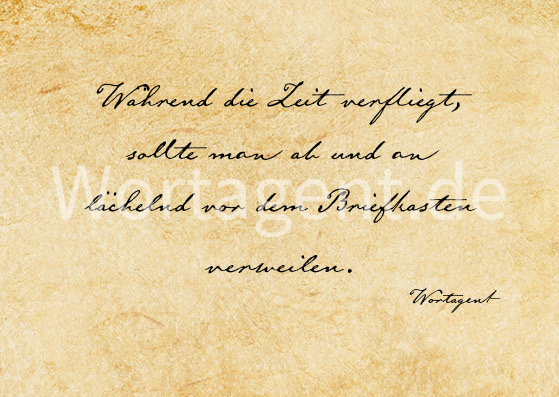 Während die Zeit verfliegt,
sollte man ab und an
Wortagent.de
lächelnd vor dem Briefkasten
verweilen.
Wortagent